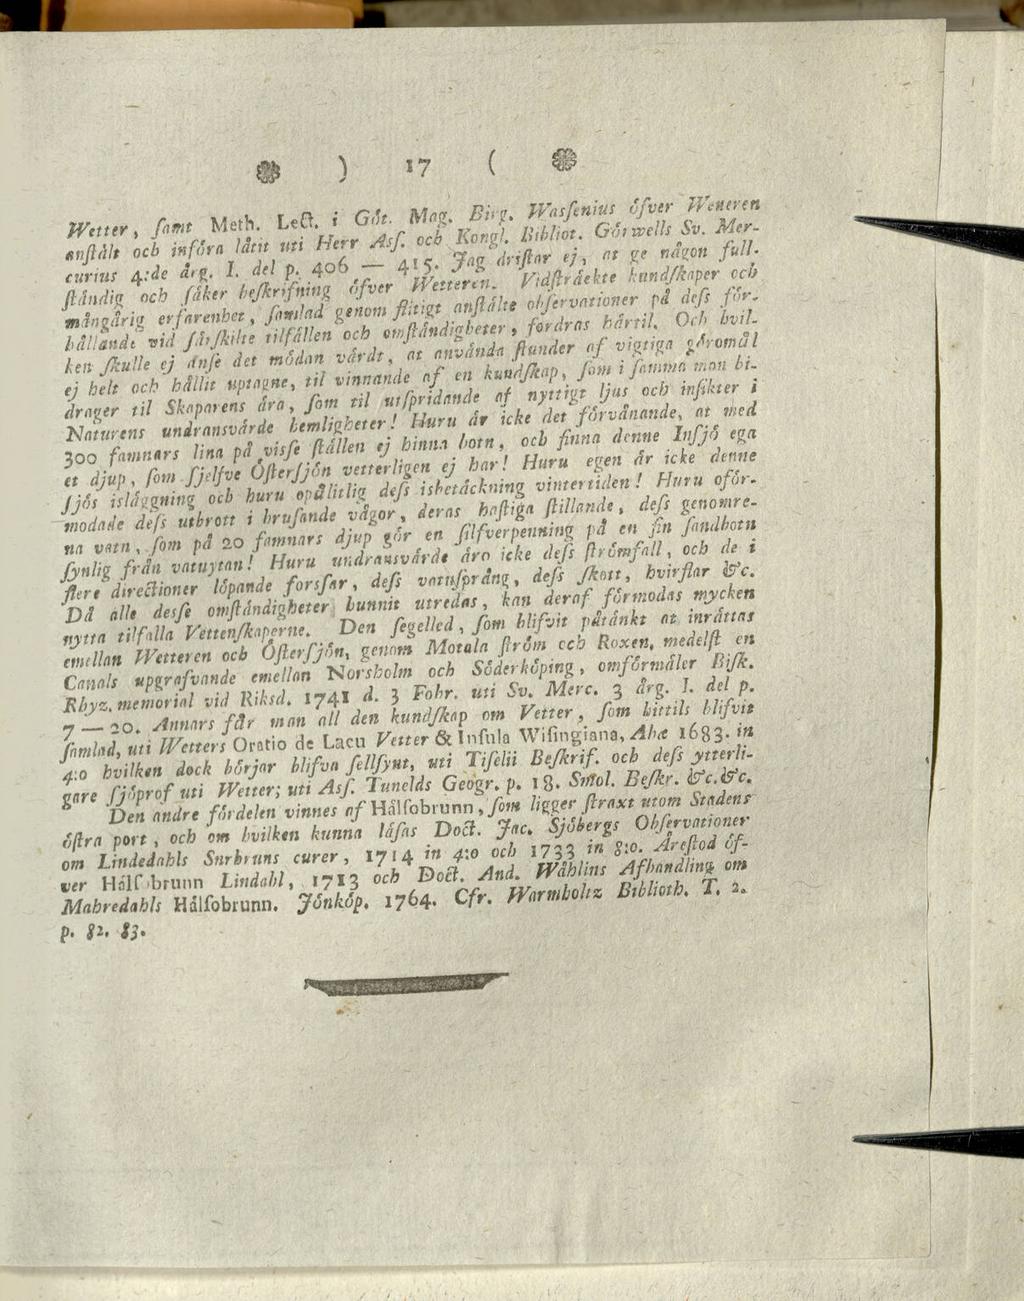 ) 17 (
Wetter, ſamt Meth. Lect. i Göt. Mag. Birg. Wasſenius öfver Weneren
anſtält och införa låtit uti Herr Asſ. och Kongl. Bibliot. Götwells Sv. Mer-
curius 4:de årg. I. del p. 406 — 415. Jag driſtar ej, at ge någon full-
ſtändig och ſäker beſkrifning öfver Wetteren. Vidſträckte kundſkaper och
mångårig erfarenhet, ſamlad genom flitigt anſtälte obſervationer på deſs för-
hållande vid ſärſkilte tilfällen och omſtändigheter, fordras härtil. Och hvil-
ken ſkulle ej anſe det mödan värdt, at använda ſtunder af vigtiga göromål
ej helt och hållit uptagne, til vinnande af en kundſkap, ſom i ſamma mon bi-
drager til Skaparens ära, ſom til utſpridande af nyttigt ljus och inſikter i
Naturens undransvärde hemligheter! Huru är icke det förvånande, at med
300 famnars lina på visſe ſtällen ej hinna botn, och finna denne Inſjö ega
et djup, ſom ſjelfve Öſterſjön vetterligen ej har! Huru egen är icke denne
ſjös isläggning och huru opålitlig deſs isbetäckning vintertiden! Huru oför-
modade deſs utbrott i bruſande vågor, deras haſtiga ſtillande, deſs genomre-
na vatn, ſom på 20 famnars djup gör en ſilfverpenning på en fin ſandbotn
ſynlig från vatuytan! Huru undransvärde äro icke deſs ſtrömfall, och de i
flere directioner löpande forsſar, deſs vatnſprång, deſs ſkott, hvirflar &c.
Då alle desſe omſtändigheter hunnit utredas, kan deraf förmodas mycken
nytta tilfalla Vettenſkaperne. Den ſegelled, ſom blifvit påtänkt at inrättas
emellan Wetteren och Öſterſjön, genom Motala ſtröm och Roxen, medelſt en
Canals upgrafvande emellan Norsholm och Söderköping, omförmäler Biſk.
Rhyz. memorial vid Riksd. 1741 d. 3 Febr. uti Sv. Merc. 3 årg. I. del p.
7 — 20. Annars får man all den kundſkap om Vetter, ſom hittils blifvit
ſamlad, uti Wetters Oratio de Lacu Vetter & Inſula Wiſingiana, Abæ 1683. in
4:o hvilken dock börjar blifva ſellſynt, uti Tiſelii Beſkrif. och deſs ytterli-
gare ſjöprof uti Wetter; uti Asſ. Tunelds Geogr. p. 18. Smol. Beſkr. &c. &c.
Den andre fördelen vinnes af Hälſobrunn, ſom ligger ſtraxt utom Stadens
öſtra port, och om hvilken kunna läſas Doct. Jac. Sjöbergs Obſervationer
om Lindedahls Surbruns curer, 1714 in 4:o och 1733 in 8:o. Äreſtod öf-
ver Hälſobrunn Lindahl, 1713 och Doct. And. Wåhlins Afhandling om
Mahredahls Hälſobrunn. Jönköp. 1764. Cfr. Warmholtz Biblioth. T. 2.
p. 82. 83.